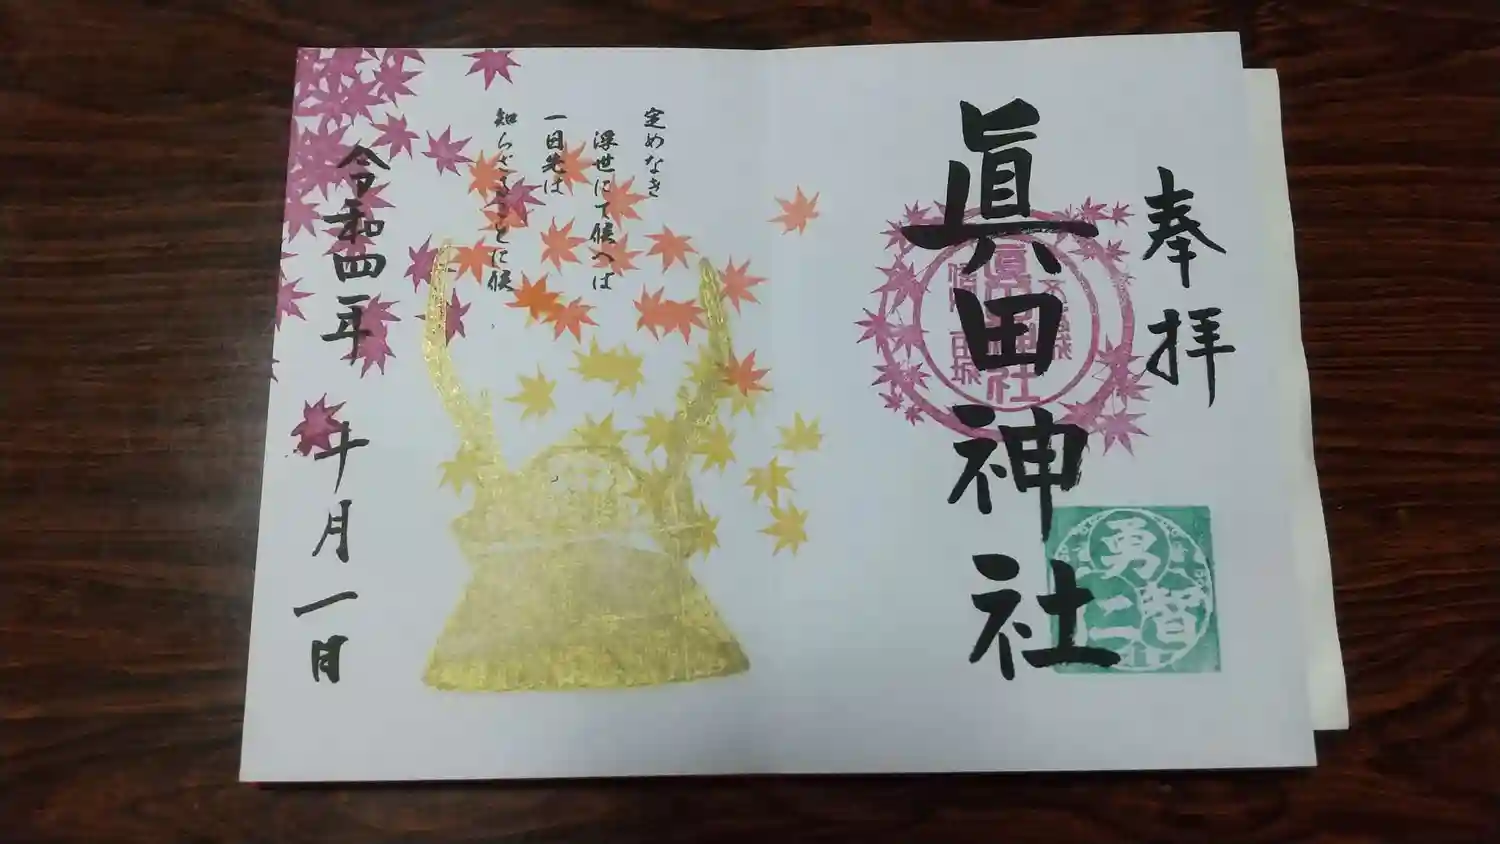 奉拝
眞田神社
勇
智
仁
定めなき
浮世にて候へば
一日先は
知らざることに候
令和四年
十月一日